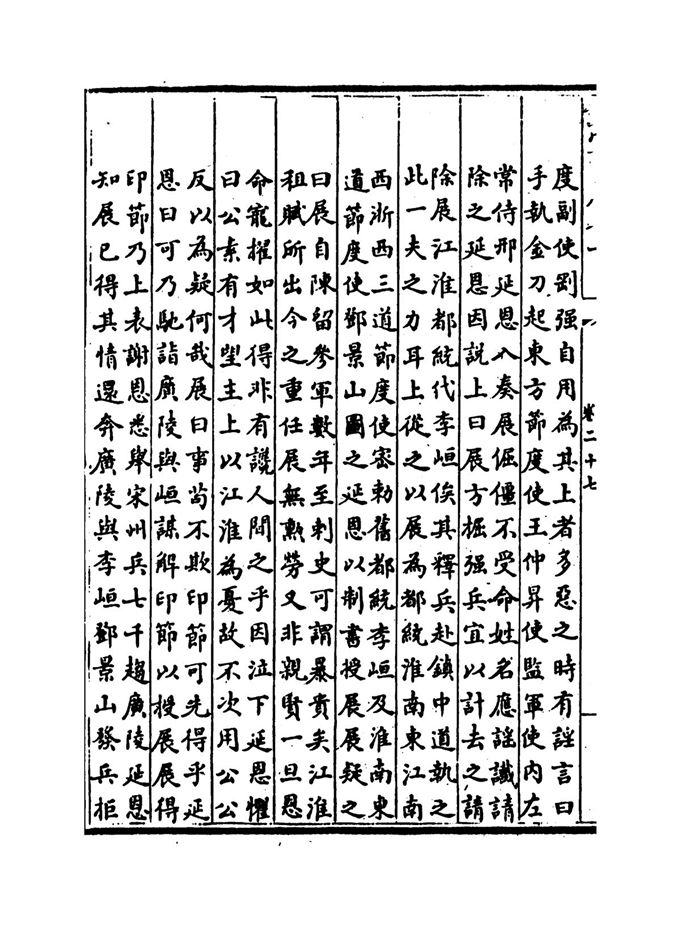 卷二十七
度副使剛强自用為其上者多惡之時有謡言曰
手執金刀起東方節度使王仲昇使監軍使内左
常侍邢延恩入奏展倔僵不受命姓名應謡讖請
除之延恩因説上曰展方掘强兵宜以計去之請
除展江淮都統代李峘俟其釋兵赴鎮中道執之
此一夫之力耳上從之以展為都統淮南東江南
西浙西三道節度使密勅舊都統李峘及淮南東
道節度使鄧景山圖之延恩以制書授展展疑之
曰展自陳留參軍數年至刺史可謂暴貴矣江淮
租賦所出今之重任展無勲勞又非親賢一旦恩
命寵擢如此得非有讒人間之乎因泣下延恩懼
曰公素有才望主上以江淮為憂故不次用公公
反以為疑何哉展曰事茍不欺印節可先得乎延
恩曰可乃馳詣廣陵與峘謀解印節以授展展得
印節乃上表謝恩悉舉宋州兵七千趨廣陵延恩
知展已得其情還奔廣陵與李峘鄧景山發兵拒